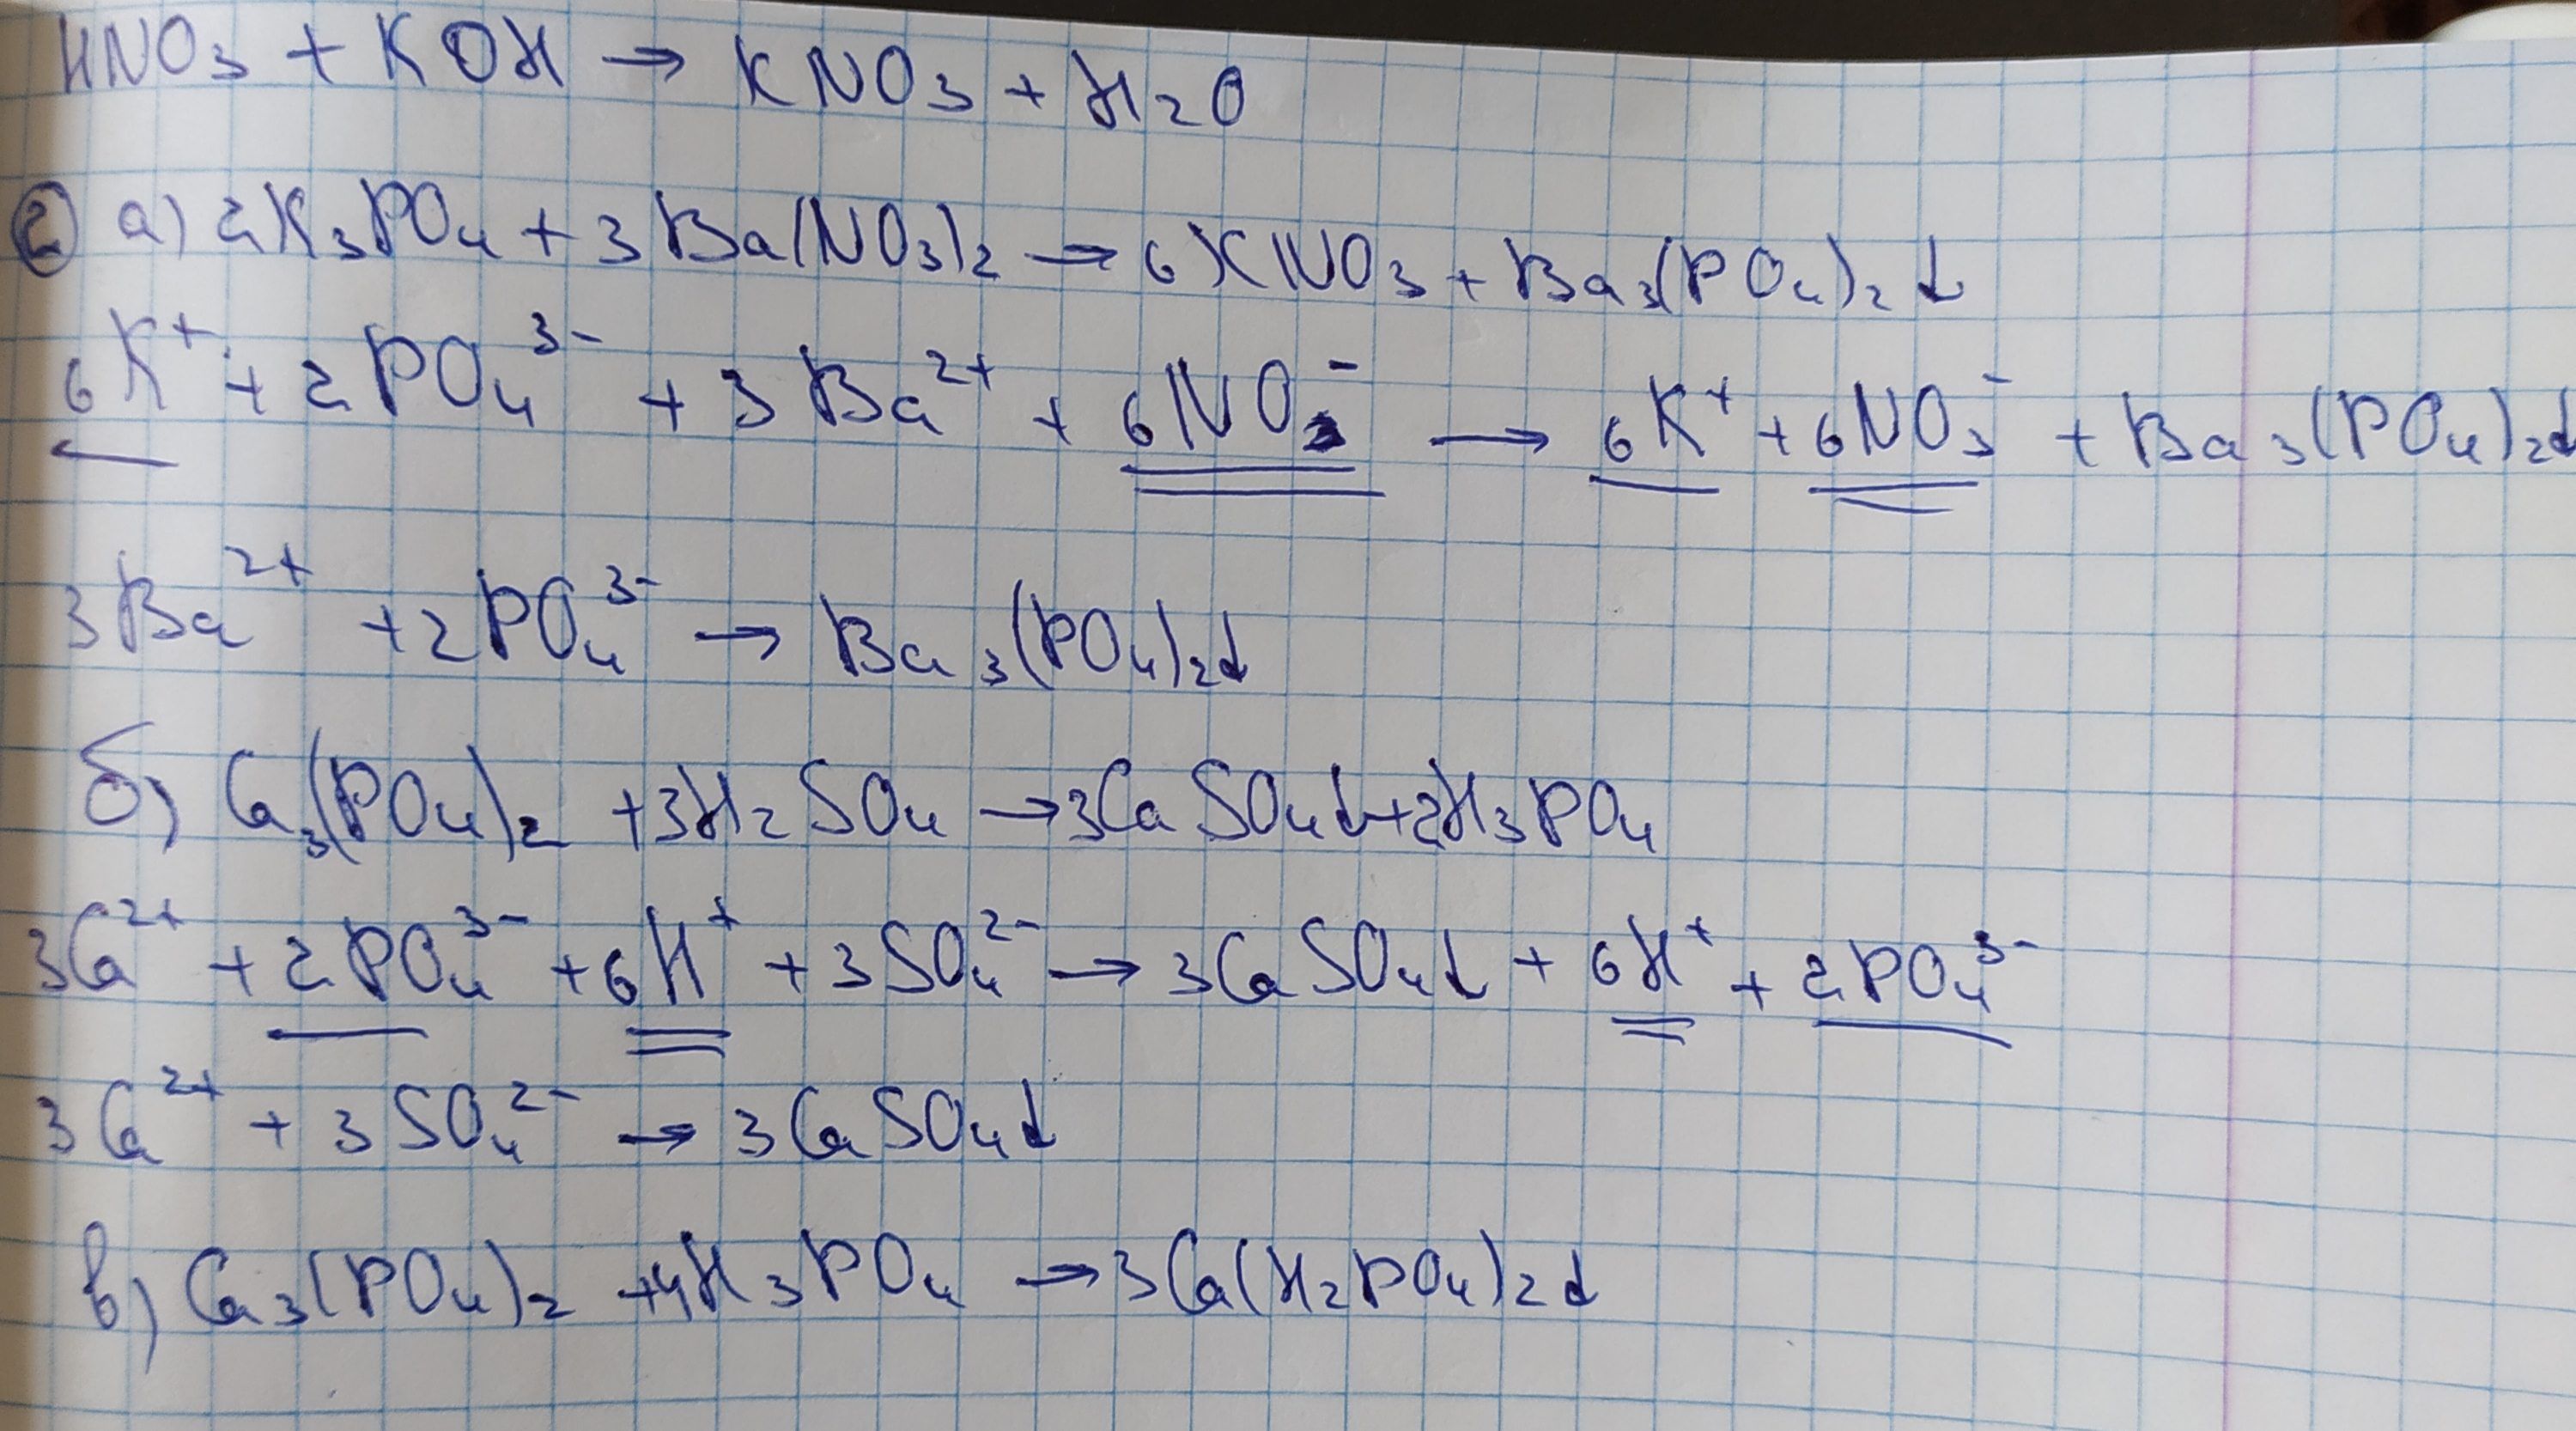 HNO₃ + KOH → KNO₃ + H₂O
② а) 2K₃PO₄ + 3Ba(NO₃)₂ → 6KNO₃ + Ba₃(PO₄)₂↓
6K⁺ + 2PO₄³⁻ + 3Ba²⁺ + 6NO₃⁻ → 6K⁺ + 6NO₃⁻ + Ba₃(PO₄)₂↓
3Ba²⁺ + 2PO₄³⁻ → Ba₃(PO₄)₂↓
б) Ca₃(PO₄)₂ + 3H₂SO₄ → 3CaSO₄↓ + 2H₃PO₄
3Ca²⁺ + 2PO₄³⁻ + 6H⁺ + 3SO₄²⁻ → 3CaSO₄↓ + 6H⁺ + 2PO₄³⁻
3Ca²⁺ + 3SO₄²⁻ → 3CaSO₄↓
в) Ca₃(PO₄)₂ + 4H₃PO₄ → 3Ca(H₂PO₄)₂↓